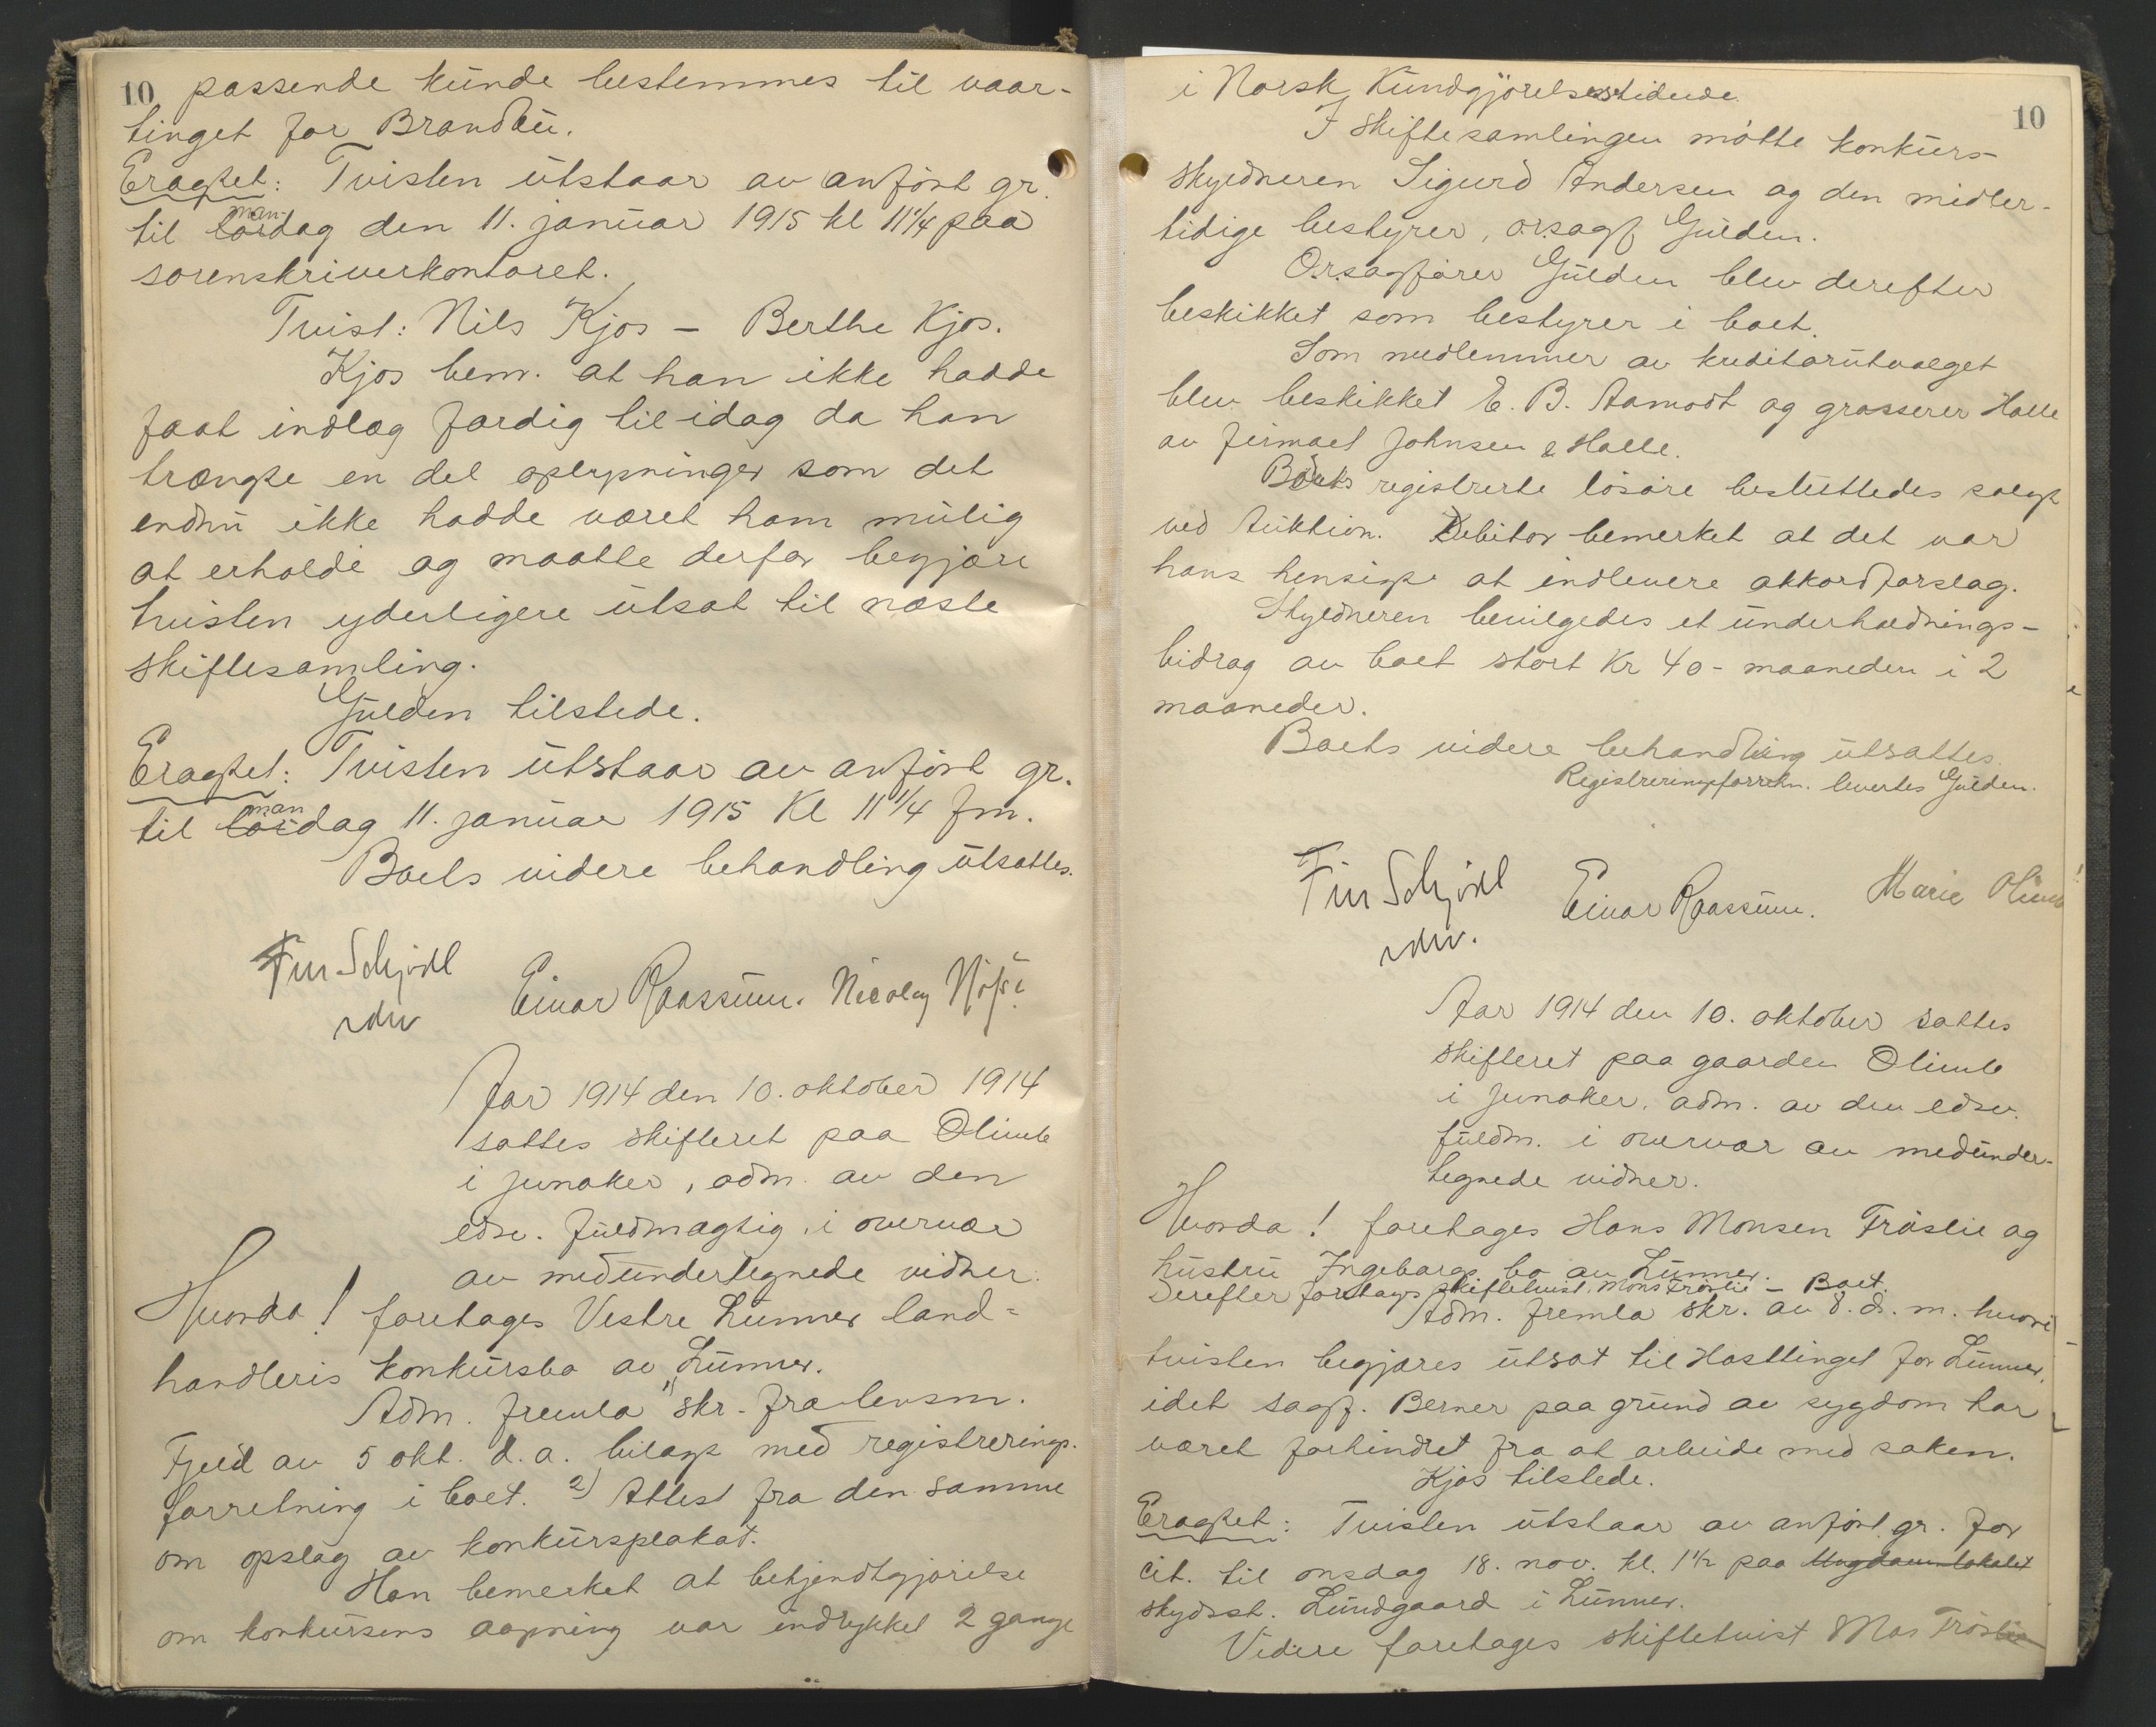 10 passende kunde bestemmes til vaar-
tinget for Brandbu.
Eragtet: Tvisten utstaar av anført gr.
til lørdag man den 11. januar 1915 kl 11 1/4 paa
sorenskriverkontoret.
Tvist: Nils Kjos – Berthe Kjos.
Kjos bem. at han ikke hadde
faat indlæg færdig til idag da han
trængte en del oplysninger som det
endnu ikke hadde været ham mulig
at erholde og maatte derfor begjære
tvisten yderligere utsat til næste
skiftesamling.
Gulden tilstede.
Eragtet: Tvisten utstaar av anført gr.
til lørdag man 11. januar 1915 Kl 11 1/4 fm.
Boets videre behandling utsattes.
Fin Schjødt
edsv
Einar Raassum. Nicolay
Aar 1914 den 10. oktober 1914
sattes skifteret paa Olimb
i Jevnaker, adm. av den
edsv. fuldmægtig, i overvær
av medundertegnede vidner.
Hvorda! foretages Vestre Lunner land-
handleris konkursbo av Lunner.
Adm. fremla 1) skr. fra lensm.
Fjeld av 5 okt. d.a. bilagt med registrerings-
forretning i boet. 2) Attest fra den samme
om opslag av konkursplakat.
Han bemerket at bekjendtgjørelse
om konkursens aapning var indrykket 2 gange
10
i Norsk Kundgjørelsestidende.
I skiftesamlingen møtte konkurs-
skyldneren Sigurd Andersen og den midler-
tidige bestyrer, o.r.sagf Gulden.
O.r.sagfører Gulden blev derefter
beskikket som bestyrer i boet.
Som medlemmer av kreditorutvalget
blev beskikket E. B. Aamodt og grosserer Halle
av firmaet Johnsen & Halle.
Boets registrerte løsøre besluttedes solgt
ved auktion. Debitor bemerket at det var
hans hensigt at indlevere akkordforslag.
Skyldneren bevilgedes et underholdnings-
bidrag av boet stort Kr 40 - maaneden i 2
maaneder.
Boets videre behandling utsattes.
Registreringsforretn. levertes Gulden.
Fin Schjødt
edsv.
Einar Raassum. Marie Olimb
Aar 1914 den 10. oktober sattes
skifteret paa gaarden Olimb
i Jevnaker, adm. av den edsv.
fuldm. i overvær av medunder-
tegnede vidner.
Hvorda! foretages Hans Monsen Frøslie og
hustru Ingeborgs bo av Lunner.
Derefter foretages skiftetvist, Mons Frøslie – Boet.
Adm. fremla skr. av 8. d. m. hvori
tvisten begjæres utsat til Høsttinget for Lunner,
idet sagf. Berner paa grund av sygdom har
været forhindret fra at arbeide med saken.
Kjos tilstede.
Eragtet: Tvisten utstaar av anført gr. for
cit. til onsdag 18. nov. kl. 1 1/2 paa Ungdomslokalet
skydsst. Lundgaard i Lunner.
Videre foretages skiftetvist Mos Frøslie